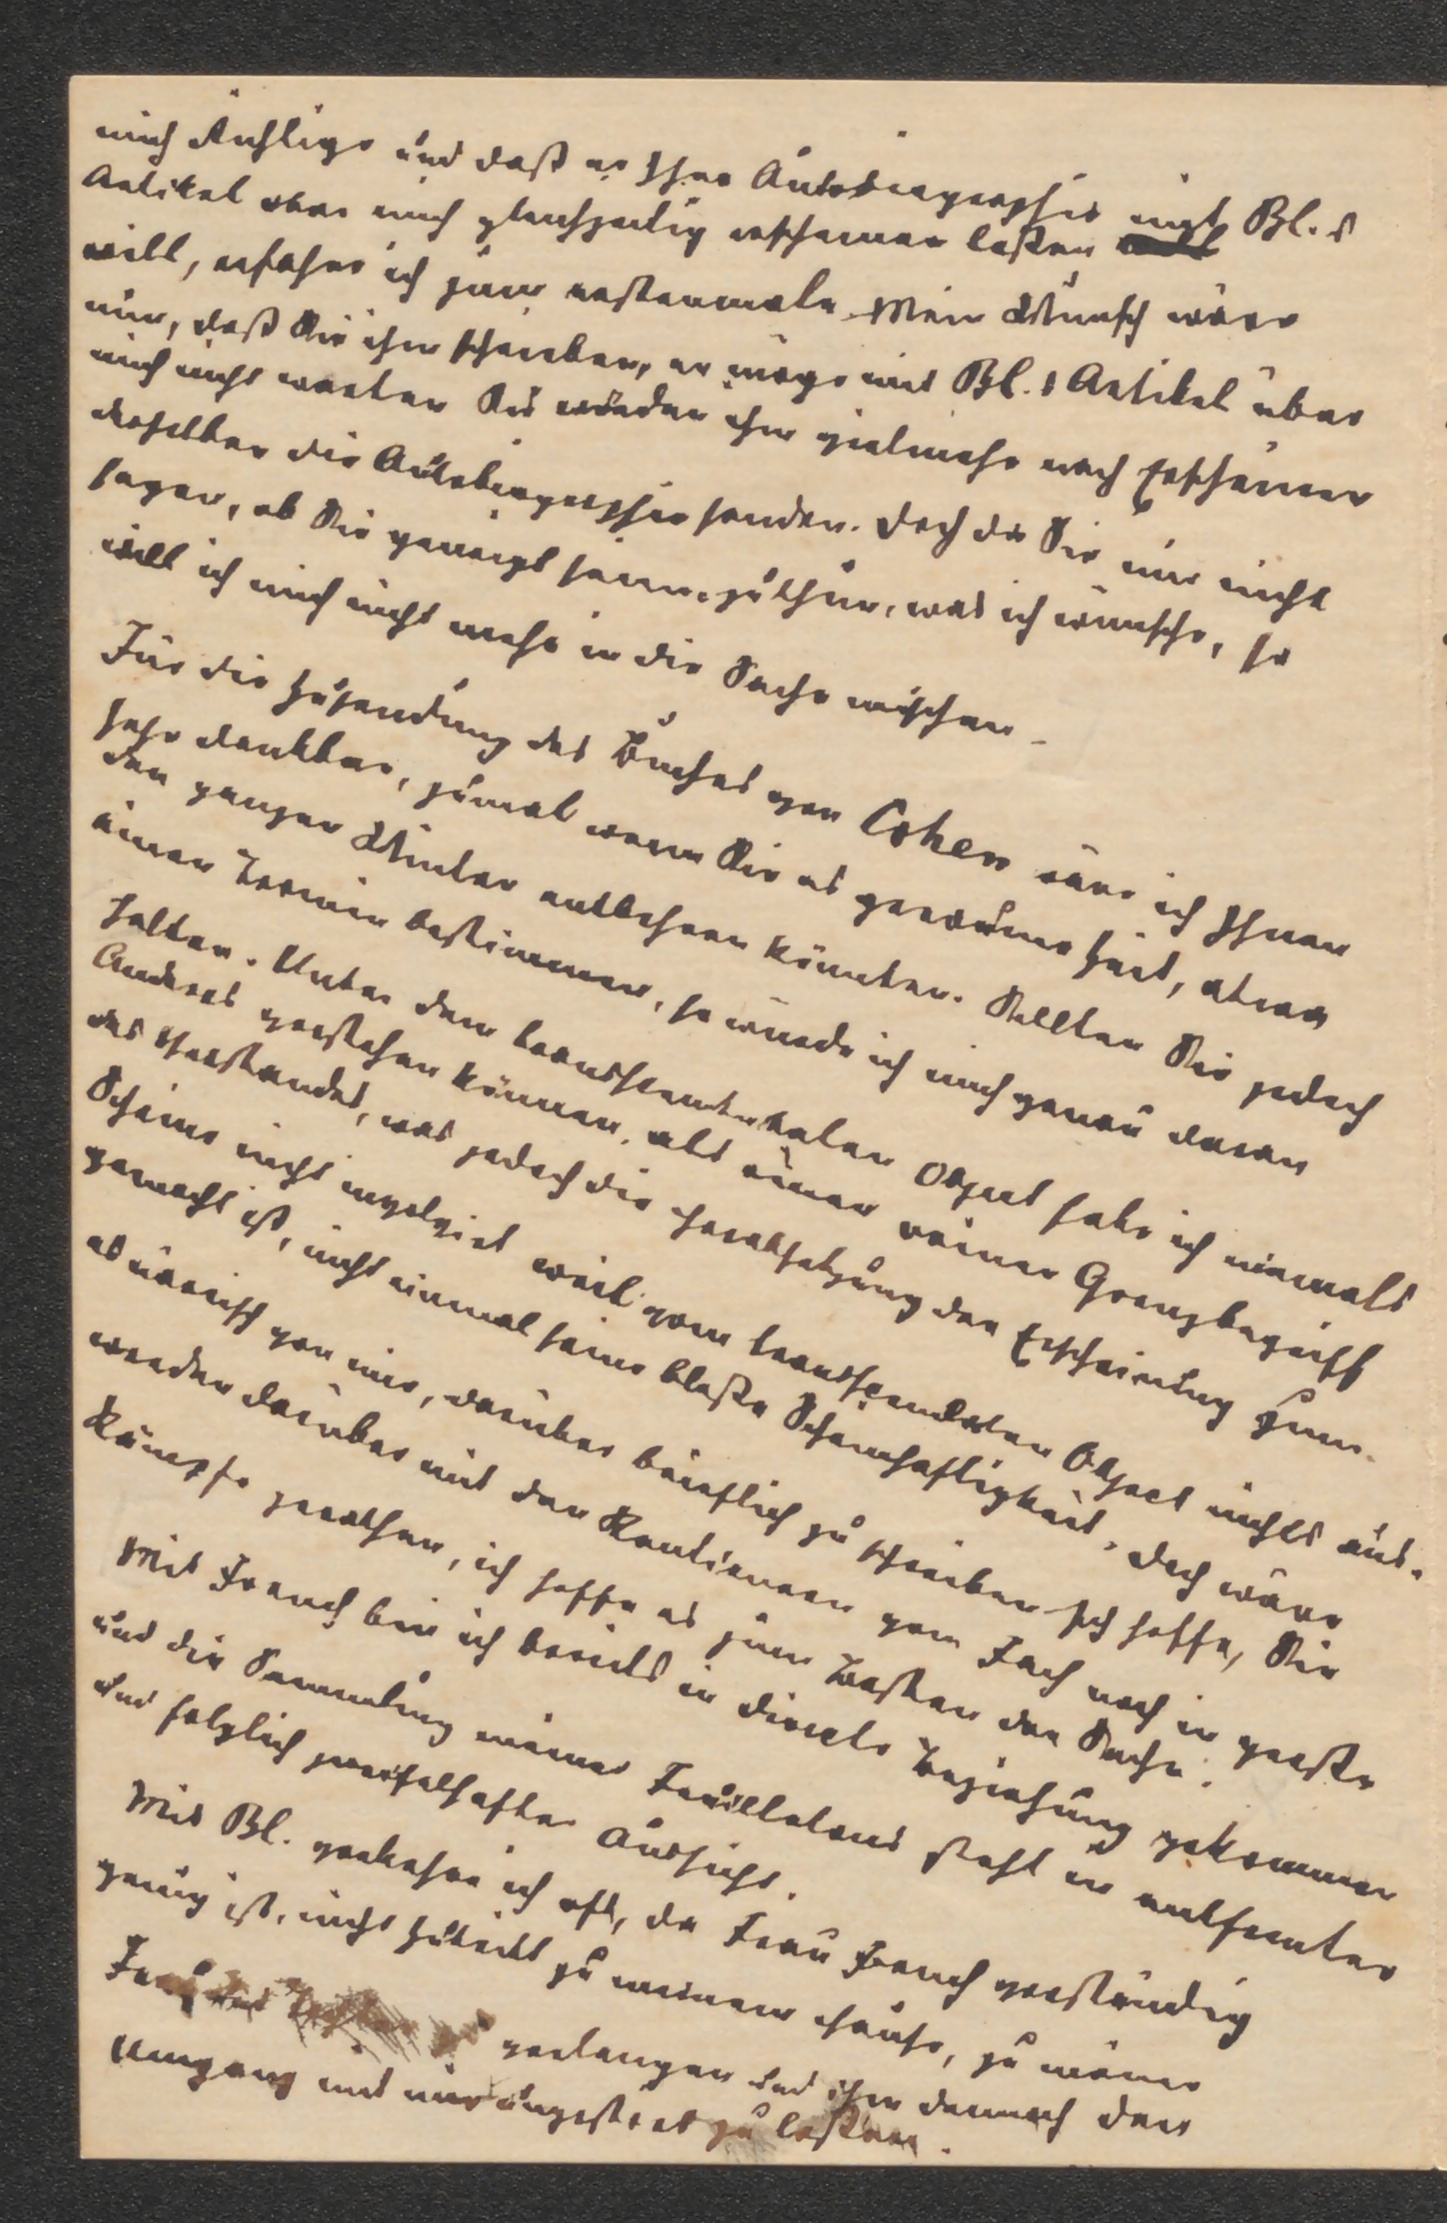 mich Anschlage und daß er Ihre Autobiographie mit Bl.s
Artikel über mich gleichzeitig erscheinen laßen
will, erfahre ich zum erstenmale. Mein Wunsch wäre
nur, daß Sie ihm schreiben, er möge mit Bl.s Artikel über
mich nicht warten Sie würden ihm vielmehr nach Erscheinen
desselben die Autobiographie senden. Doch da Sie mir nicht
sagen, ob Sie geneigt seien, zu thun, was ich wünsche, so
will ich mich nicht mehr in die Sache mischen.
Für die Zusendung des Buches von Cohen wäre ich Ihnen
sehr dankbar, zumal wenn Sie es geraume Zeit, etwa
den ganzen Winter entbehren könnten. Sollten Sie jedoch
einen Termin bestimmen, so würde ich mich genau daran
halten. Unter dem transcendentalen Object habe ich niemals
Anderes verstehen können, als einen reinen Grenzbegriff
des Verstandes, was jedoch die Herabsetzung der Erscheinung zum
Scheine nicht involvirt weil vom transcendenten Object nichts aus-
gemacht ist, nicht einmal seine bloße Scheinhaftigkeit. Doch wäre
es närrisch von mir, darüber brieflich zu schreiben Ich hoffe, Sie
werden darüber mit den Kantianern vom Fach noch in große
Kämpfe gerathen, ich hoffe es zum Besten der Sache.
Mit Franch bin ich bereits in directe Beziehung gekommen
und die Sammlung meiner Feuilletons steht in entfernter
und folglich zweifelhafter Aussicht.
Mit Bl. verkehre ich oft, da Frau Franch verständig
genug ist, nicht Zutritt zu meinem Hause, zu meiner
Frau verlangen und ihm dennoch den
Umgang mit mir ungestört zu laßen.